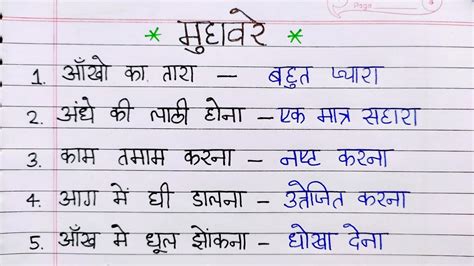 Page
* मुहावरे *
1. आँखो का तारा – बहुत प्यारा
2. अंधे की लाठी होना – एक मात्र सहारा
3. काम तमाम करना – नष्ट करना
4. आग में घी डालना – उत्तेजित करना
5. आँख मे धूल झोंकना – धोखा देना